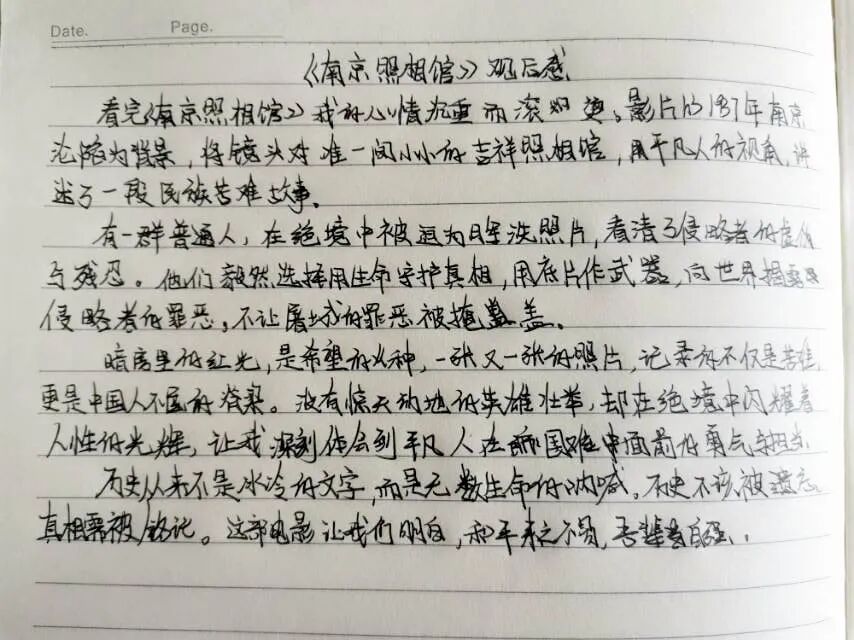 Date.
Page.
《南京照相馆》观后感
看完《南京照相馆》我的心情沉重而滚烫。影片的1937年南京
沦陷为背景，将镜头对准一间小小的吉祥照相馆，用平凡人的视角，讲
述了一段民族苦难故事。
有一群普通人，在绝境中被迫为日军洗照片，看清了侵略者的虚伪
与残忍。他们毅然选择用生命守护真相，用底片作武器，向世界揭露
侵略者的罪恶，不让屠城的罪恶被掩盖。
暗房里的红光，是希望的火种，一张又一张的照片，记录的不仅是苦难，
更是中国人不屈的脊梁。没有惊天动地的英雄壮举，却在绝境中闪耀着
人性的光辉，让我深刻体会到平凡人在国难面前的勇气与担当。
历史从来不是冰冷的文字，而是无数生命的呐喊。历史不该被遗忘，
真相需被铭记。这部电影让我们明白，和平来之不易，吾辈当自强。